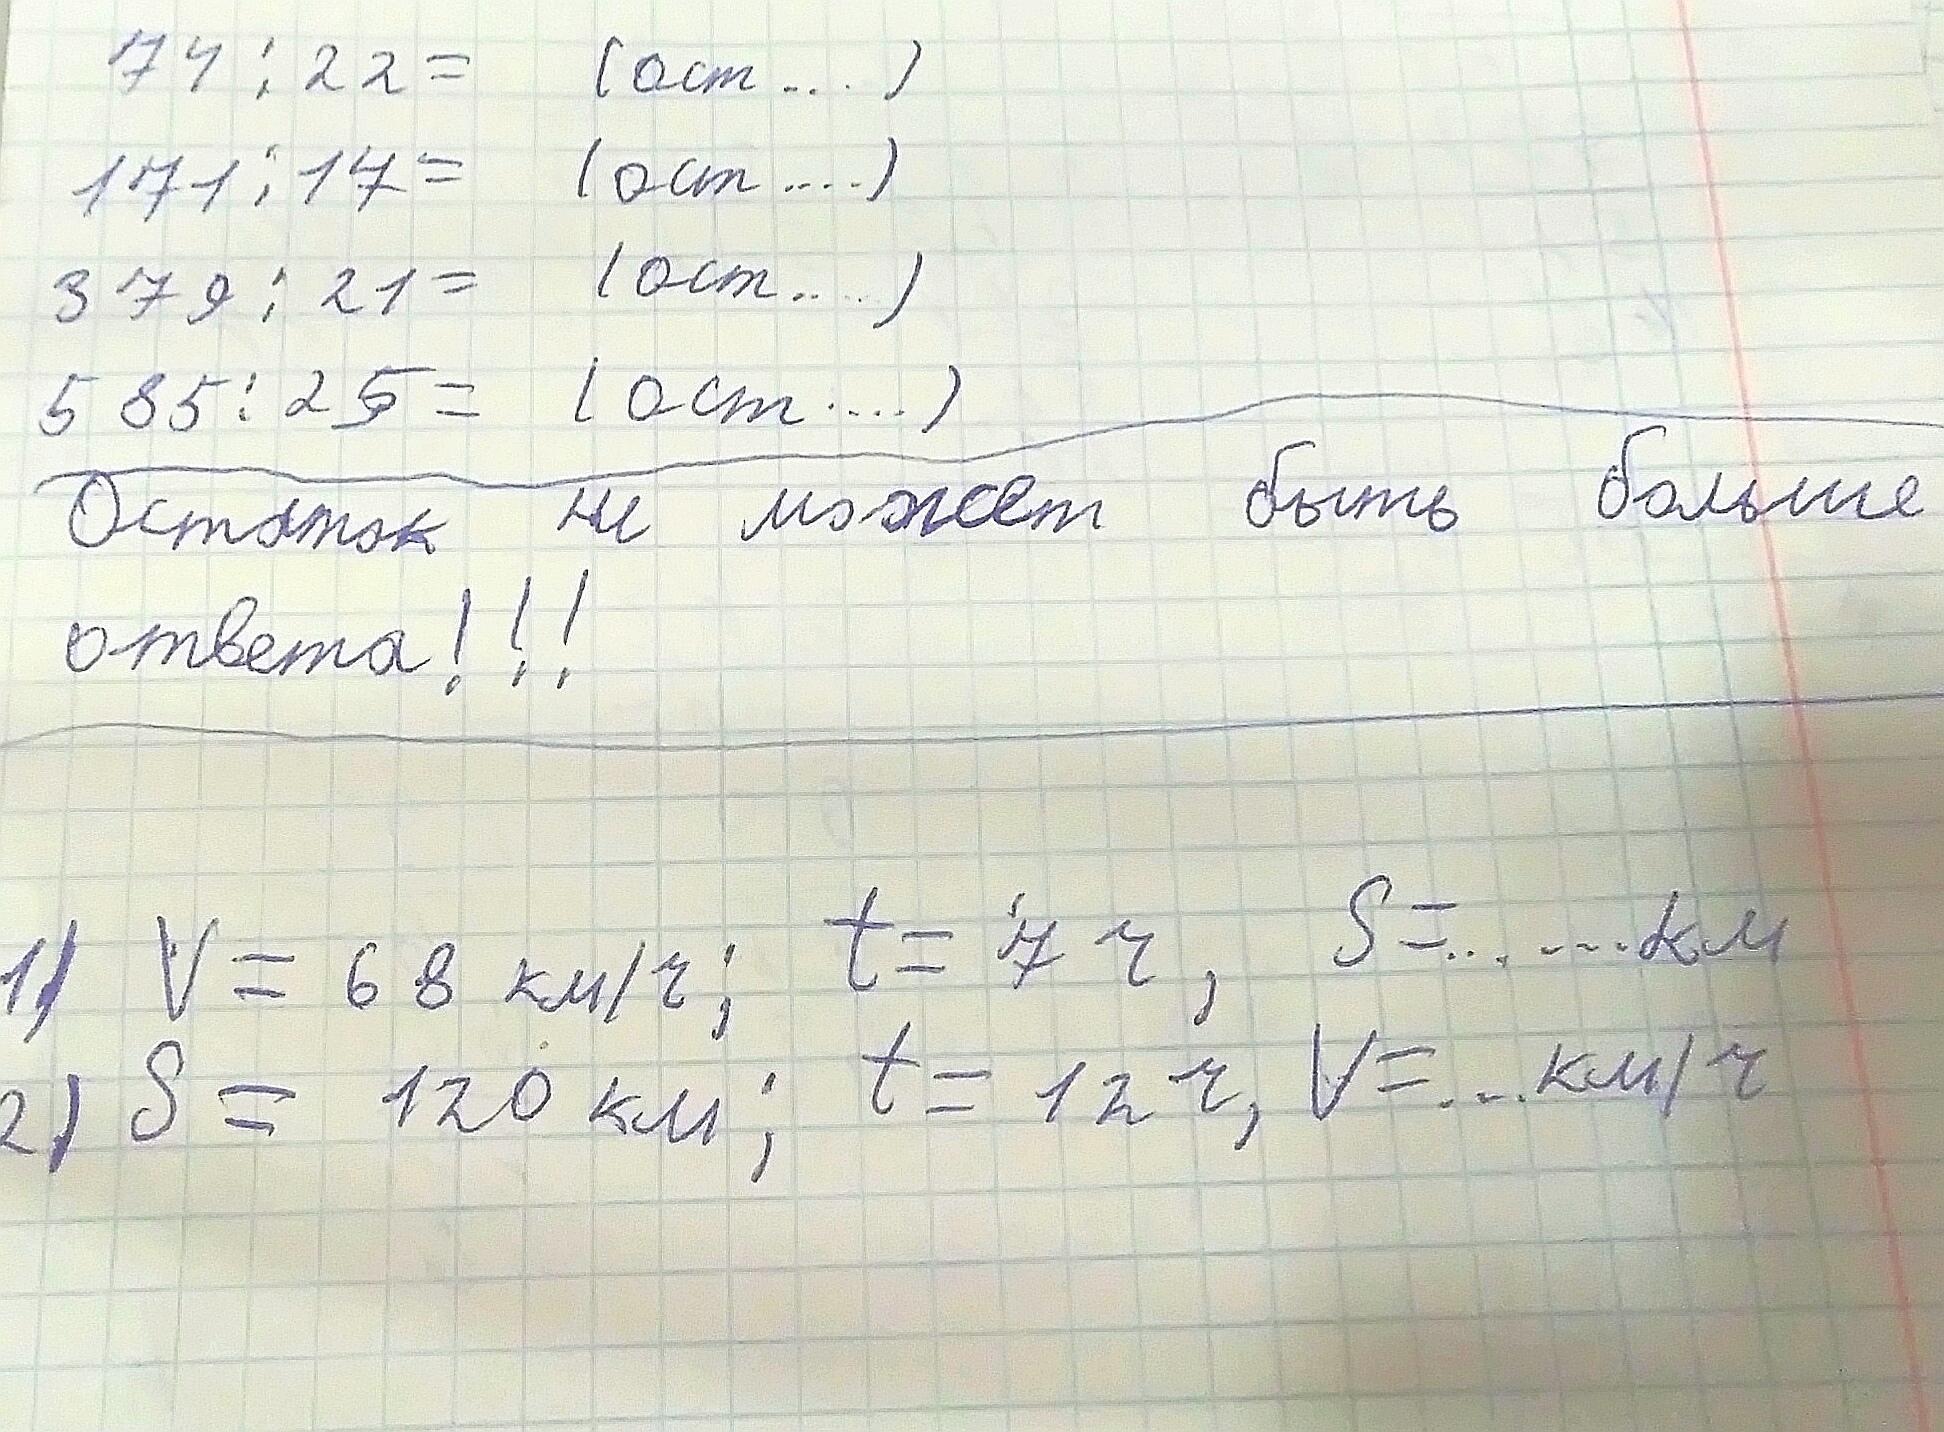 74:22= (ост....)
171:17= (ост....)
379:21= (ост....)
585:25= (ост....)
Остаток не может быть больше
ответа!!!
1) V= 68 км/ч; t= 7 ч, S=......км
2) S= 120 км; t= 12 ч, V=....км/ч